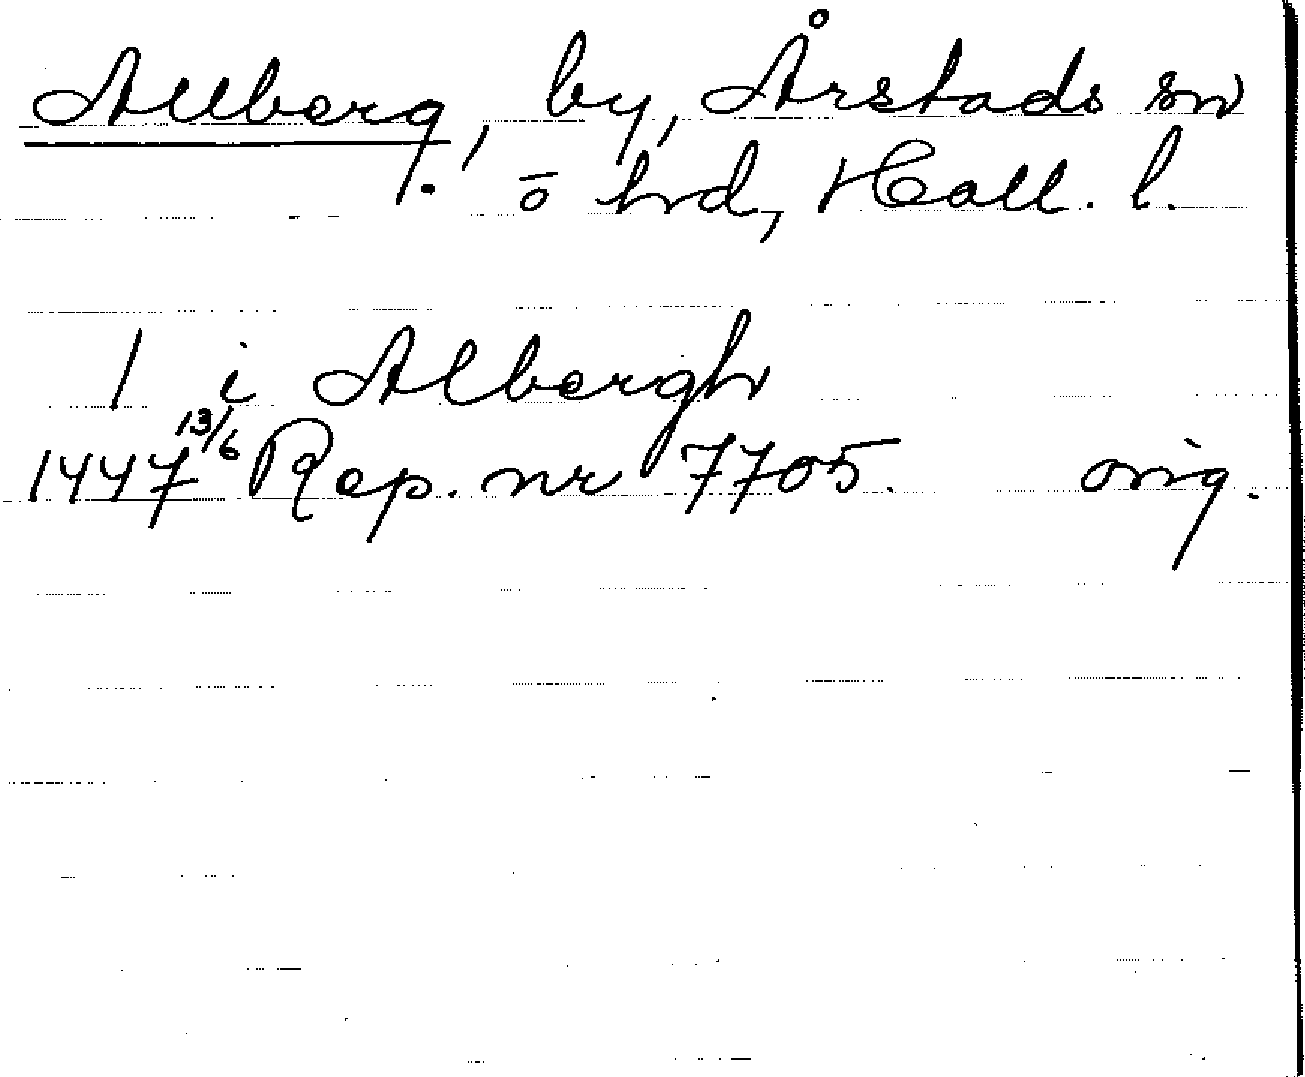 Allberg, by, Årstads sn
o hrd, Hall. l.
1 i Albergh
1447 13/6 Rep. nr 7705. orig.